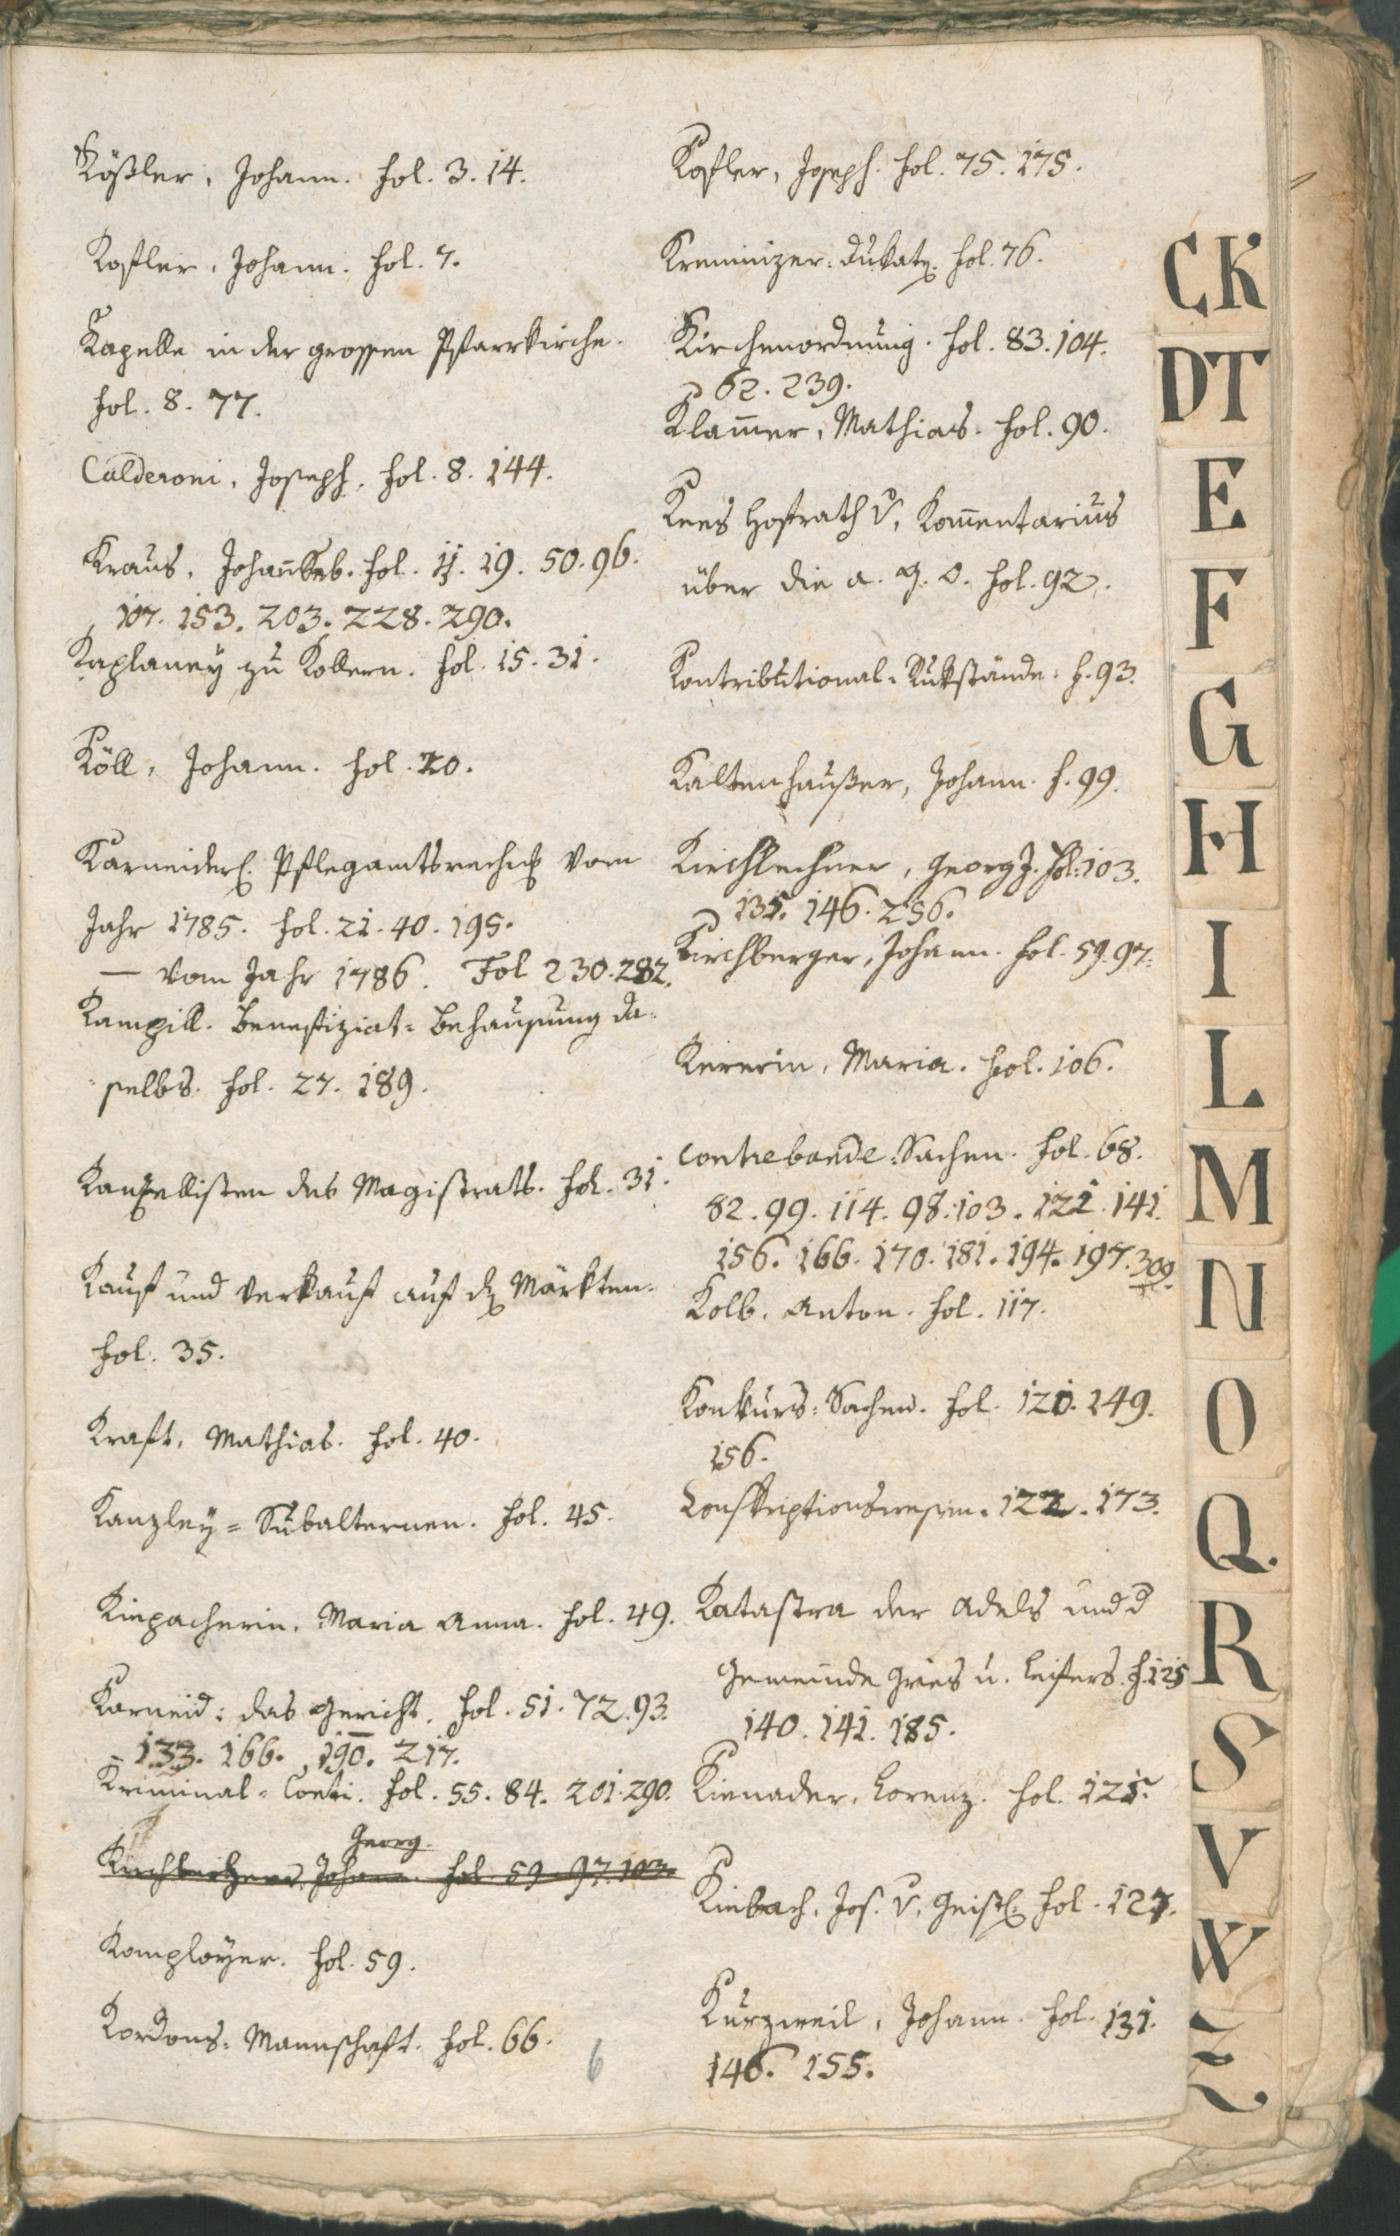 Kößler, Johann. fol. 3. 14.
Kofler, Johann. fol. 7.
Kapelle in der grossen Pfarrkirche.
fol. 8. 77.
Calderoni, Joseph, fol. 8. 144.
Kraus, Johann Seb. fol. 11. 19. 50. 96.
107. 153. 203. 228. 290.
Kaplaney zu Kollern. fol. 15. 31.
Köll, Johann. fol. 20.
Karneider Pflegamtsrechng vom
Jahr 1785. fol. 21. 40. 195.
— vom Jahr 1786. Fol 230. 282.
Kampill. Benefiziat-Behausung da-
selbs. fol. 27. 189.
Kanzellisten des Magistrats. fol. 31.
Kauf und Verkauf auf den Märkten.
fol. 35.
Kraft, Mathias. fol. 40.
Kanzley-Subalternen. fol. 45.
Kiepacherin, Maria Anna. fol. 49.
Karneid: das Gericht. fol. 51. 72. 93.
133. 166. 190. 217.
Kriminal-Conti. fol. 55. 84. 201. 290.
Georg.
Johann. fol. 59. 97. 103.
Komployer. fol. 59.
Kordons-Mannschaft. fol. 66.
6
Kofler, Joseph. fol. 75. 175.
Kremnizer-Dukaten. fol. 76.
Kirchenordnung. fol. 83. 104.
62. 239.
Klam̄er, Mathias. fol. 90.
Kees Hofrath v, Kom̄entarius
über die a. G. O. fol. 92.
Kontributional-Rükstände. f. 93.
Kaltenhaußer, Johann. f. 99.
Kirchlechner, Georg J. fol. 103.
135. 146. 256.
Kirchberger, Johann. fol. 59. 97.
Kererin, Maria. fol. 106.
Contrebande-Sachen. fol. 68.
82. 99. 114. 98. 103. 121. 141.
156. 166. 170. 181. 194. 197. 309.
Kolb, Anton. fol. 117.
Konkurs-Sachen. fol. 120. 149.
156.
Conskriptionswesen. 122. 173.
Katastra der Adels und d
Gemeinde Gries u. Leifers. f. 125
140. 141. 185.
Kienader, Lorenz. fol. 125.
Kiebach, Jos. v, Geistl. fol. 127.
Kurzweil, Johann. fol. 131.
146. 155.
CK
DT
E
F
G
H
I
L
M
N
O
Q.
R
S
V
W
Z